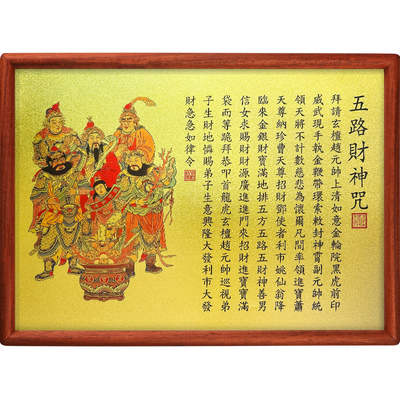 五路財神咒
拜請玄壇趙元帥上清如意金輪院黑虎前印
威武現手執金鞭帶環索敕封神霄副元帥統
領天將不計數慈悲為懷爾凡間率領進寶蕭
天尊納珍曹天尊招財鄧使者利市姚仙翁降
臨來金銀財寶滿地排五方五路五財神善男
信女求賜財財源廣進進門來招財進寶寶滿
袋而等跪拜恭叩首龍虎玄壇趙元帥巡視弟
子生財地憐賜弟子生意興隆大發利市大發
財急急如律令